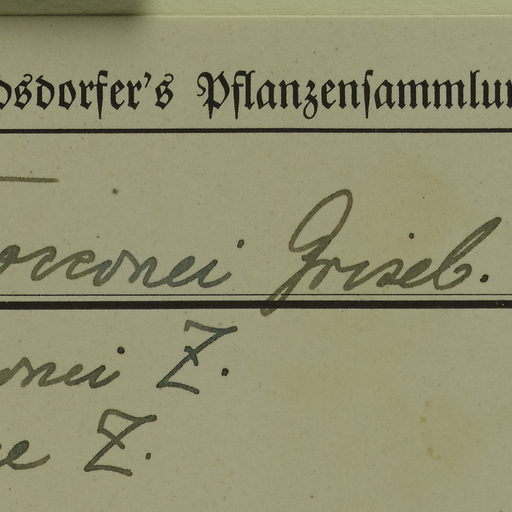 dsdorfer's Pflanzensammlun
Griseb.
nei Z.
e Z.